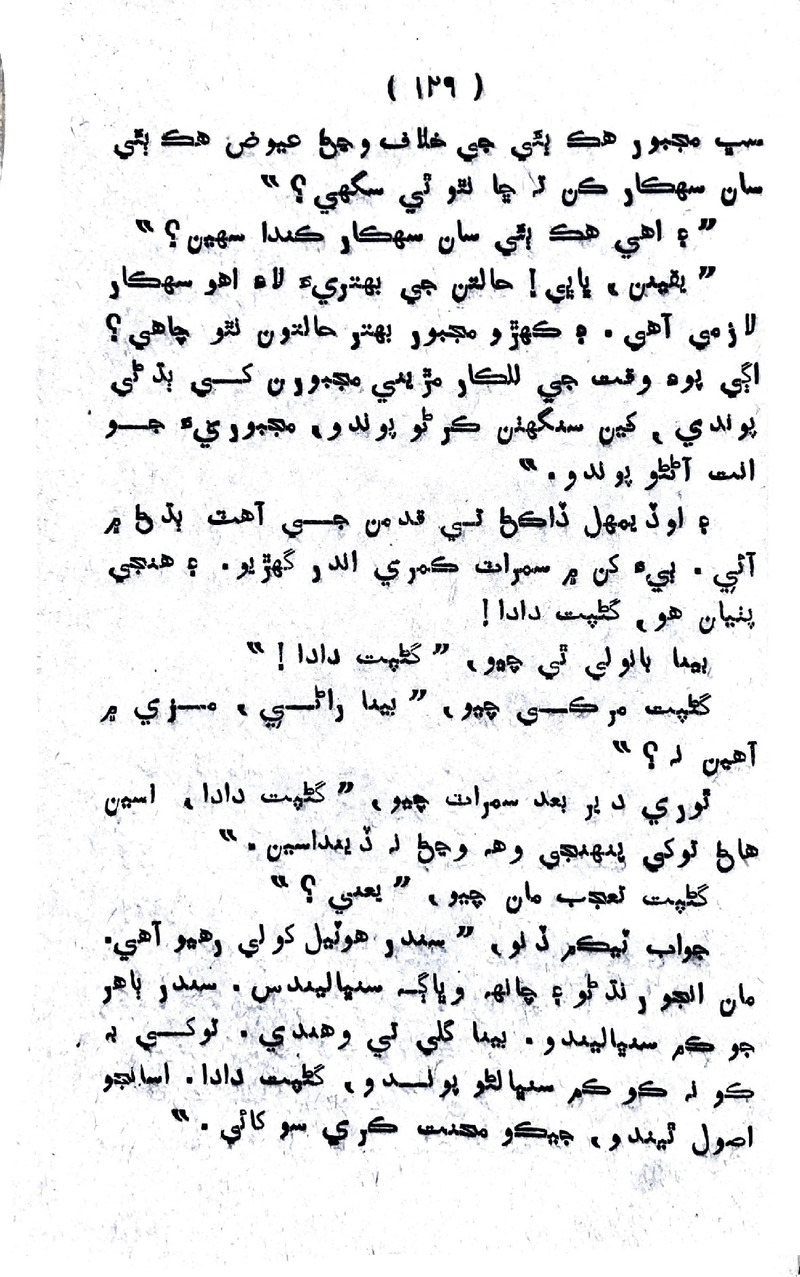 ( ١٢٩ )
سڀ مجبور هڪ ٻئي جي خلاف وڃڻ عيوض هڪ ٻئي
سان سهڪار ڪن ته ڇا نٿو ٿي سگهي؟ “
” ۽ اهي هڪ ٻئي سان سهڪار ڪندا سهين؟ “
” يقينن، ڀاڀي! حالتن جي بهتريءَ لاءِ اهو سهڪار
لازمي آهي. ۽ ڪهڙو مجبور بهتر حالتون نٿو چاهي؟
اڳي پوءِ وقت جي للڪار مڙيني مجبورن کـي ٻڌڻي
پوندي، کين سنگهٽن ڪرڻو پوندو، مجبوريءَ جـو
انت آڻڻو پوندو. “
۽ اوڏيمهل ڏاڪڻ تـي قدمن جـي آهٽ ٻڌڻ ۾
آئي. ٻيءَ کن ۾ سمراٽ ڪمري اندر گهڙيو. ۽ هنجي
پٺيان هو، گڻپت دادا!
بينا ٻانولي ٿي چيو، ” گڻپت دادا! “
گڻپت مرڪـي چيو، ” بينا راڻـي، مـزي ۾
آهين نه؟ “
ٿوري دير بعد سمراٽ چيو، ” گڻپت دادا، اسين
هاڻ توکي پنهنجي وهه وڃڻ نه ڏينداسين. “
گڻپت تعجب مان چيو، ” يعني؟ “
جواب ٽيڪم ڏنو، ” سندر هوٽيل کولي رهيو آهي.
مان انجو رنڌڻو ۽ چانهه وڀاڳ سنڀاليندس. سندر ٻاهر
جو ڪم سنڀاليندو. بينا گلي تي وهندي. توکـي به
ڪو نه ڪو ڪم سنڀالڻو پونـدو، گڻپت دادا. اسانجو
اصول ٿيندو، جيڪو محنت ڪري سو کائي. “